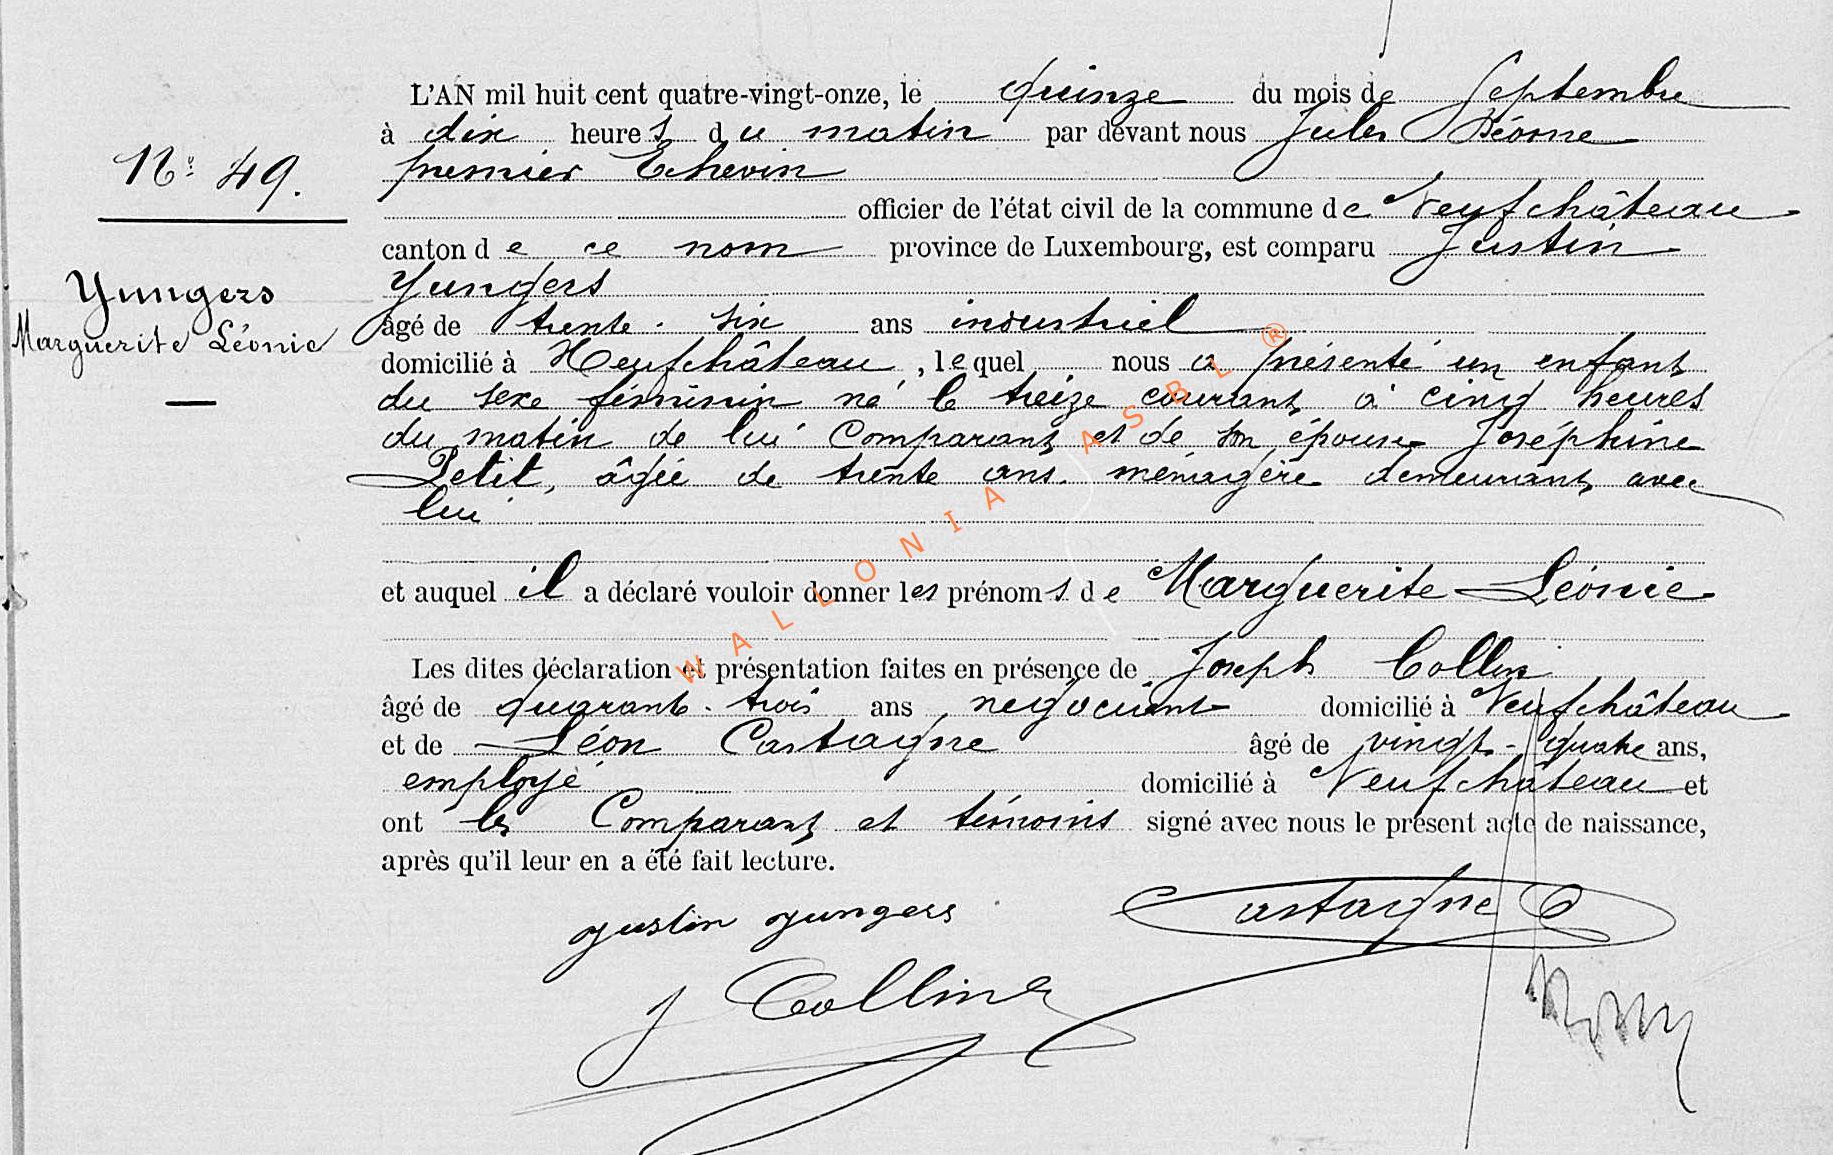 L'AN mil huit cent quatre-vingt-onze, le quinze du mois de Septembre
à dix heures du matin par devant nous Jules Déome
premier Echevin
officier de l'état civil de la commune de Neufchâteau
canton de ce nom province de Luxembourg, est comparu Justin
Yungers
âgé de trente-six ans industriel
domicilié à Neufchâteau, lequel nous a présenté un enfant
du sexe féminin né le treize courant à cinq heures
du matin de lui Comparant et de son épouse Joséphine
Petit, âgée de trente ans. ménagère demeurant avec
lui
et auquel il a déclaré vouloir donner les prénoms de Marguerite Léonie
Les dites déclaration et présentation faites en présence de Joseph Collin
âgé de quarante-trois ans, négociant domicilié à Neufchâteau
et de Léon Castagne âgé de vingt-quatre ans,
employé domicilié à Neufchâteau et
ont les Comparant et témoins signé avec nous le présent acte de naissance,
après qu'il leur en a été fait lecture.
No: 49.
Yungers
Marguerite Léonie
justin yungers
Castagne
J Collin
WALLONIA ASBL ®